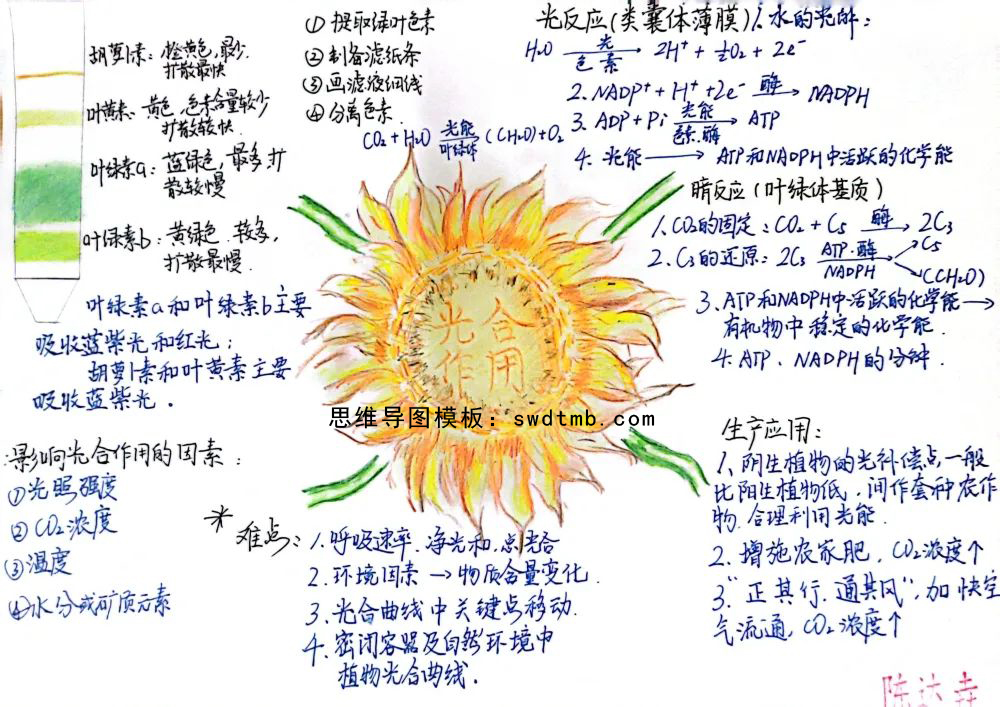 胡萝卜素：橙黄色,最少.
扩散最快
叶黄素：黄色.色素含量较少
扩散较快.
叶绿素a：蓝绿色,最多.扩
散较慢
叶绿素b：黄绿色.较多,
扩散最慢.
叶绿素a和叶绿素b主要
吸收蓝紫光和红光；
胡萝卜素和叶黄素主要
吸收蓝紫光.
① 提取绿叶色素
② 制备滤纸条
③ 画滤液细线
④ 分离色素
CO₂+H₂O 光能 叶绿体 (CH₂O)+O₂
光反应(类囊体薄膜) 1.水的光解：
H₂O 光 色素 → 2H⁺ + ½O₂ + 2e⁻
2. NADP⁺ + H⁺ +2e⁻ 酶 → NADPH
3. ADP + Pi 光能 色素.酶 → ATP
4. 光能 → ATP和NADPH中活跃的化学能
暗反应(叶绿体基质)
1.CO₂的固定：CO₂ + C₅ 酶 → 2C₃
2. C₃的还原：2C₃ ATP.酶 NADPH → C₅
(CH₂O)
3. ATP和NADPH中活跃的化学能→
有机物中稳定的化学能.
4. ATP、NADPH的分钟.
光合
作用
思维导图模板：swdtmb.com
影响光合作用的因素：
①光照强度
②CO₂浓度
③温度
④水分或矿质元素
* 难点：1.呼吸速率.净光和.总光合
2.环境因素→物质含量变化.
3.光合曲线中关键点移动.
4.密闭容器及自然环境中
植物光合曲线.
生产应用：
1.阴生植物的光补偿点一般
比阳生植物低,间作套种农作
物.合理利用光能.
2.增施农家肥,CO₂浓度↑
3."正其行.通其风",加快空
气流通,CO₂浓度↑